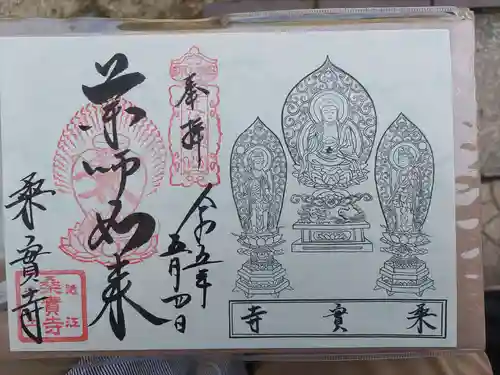 奉拝
令和五年
五月四日
薬師如来
乗實寺
池江
乗實寺
寺實乗